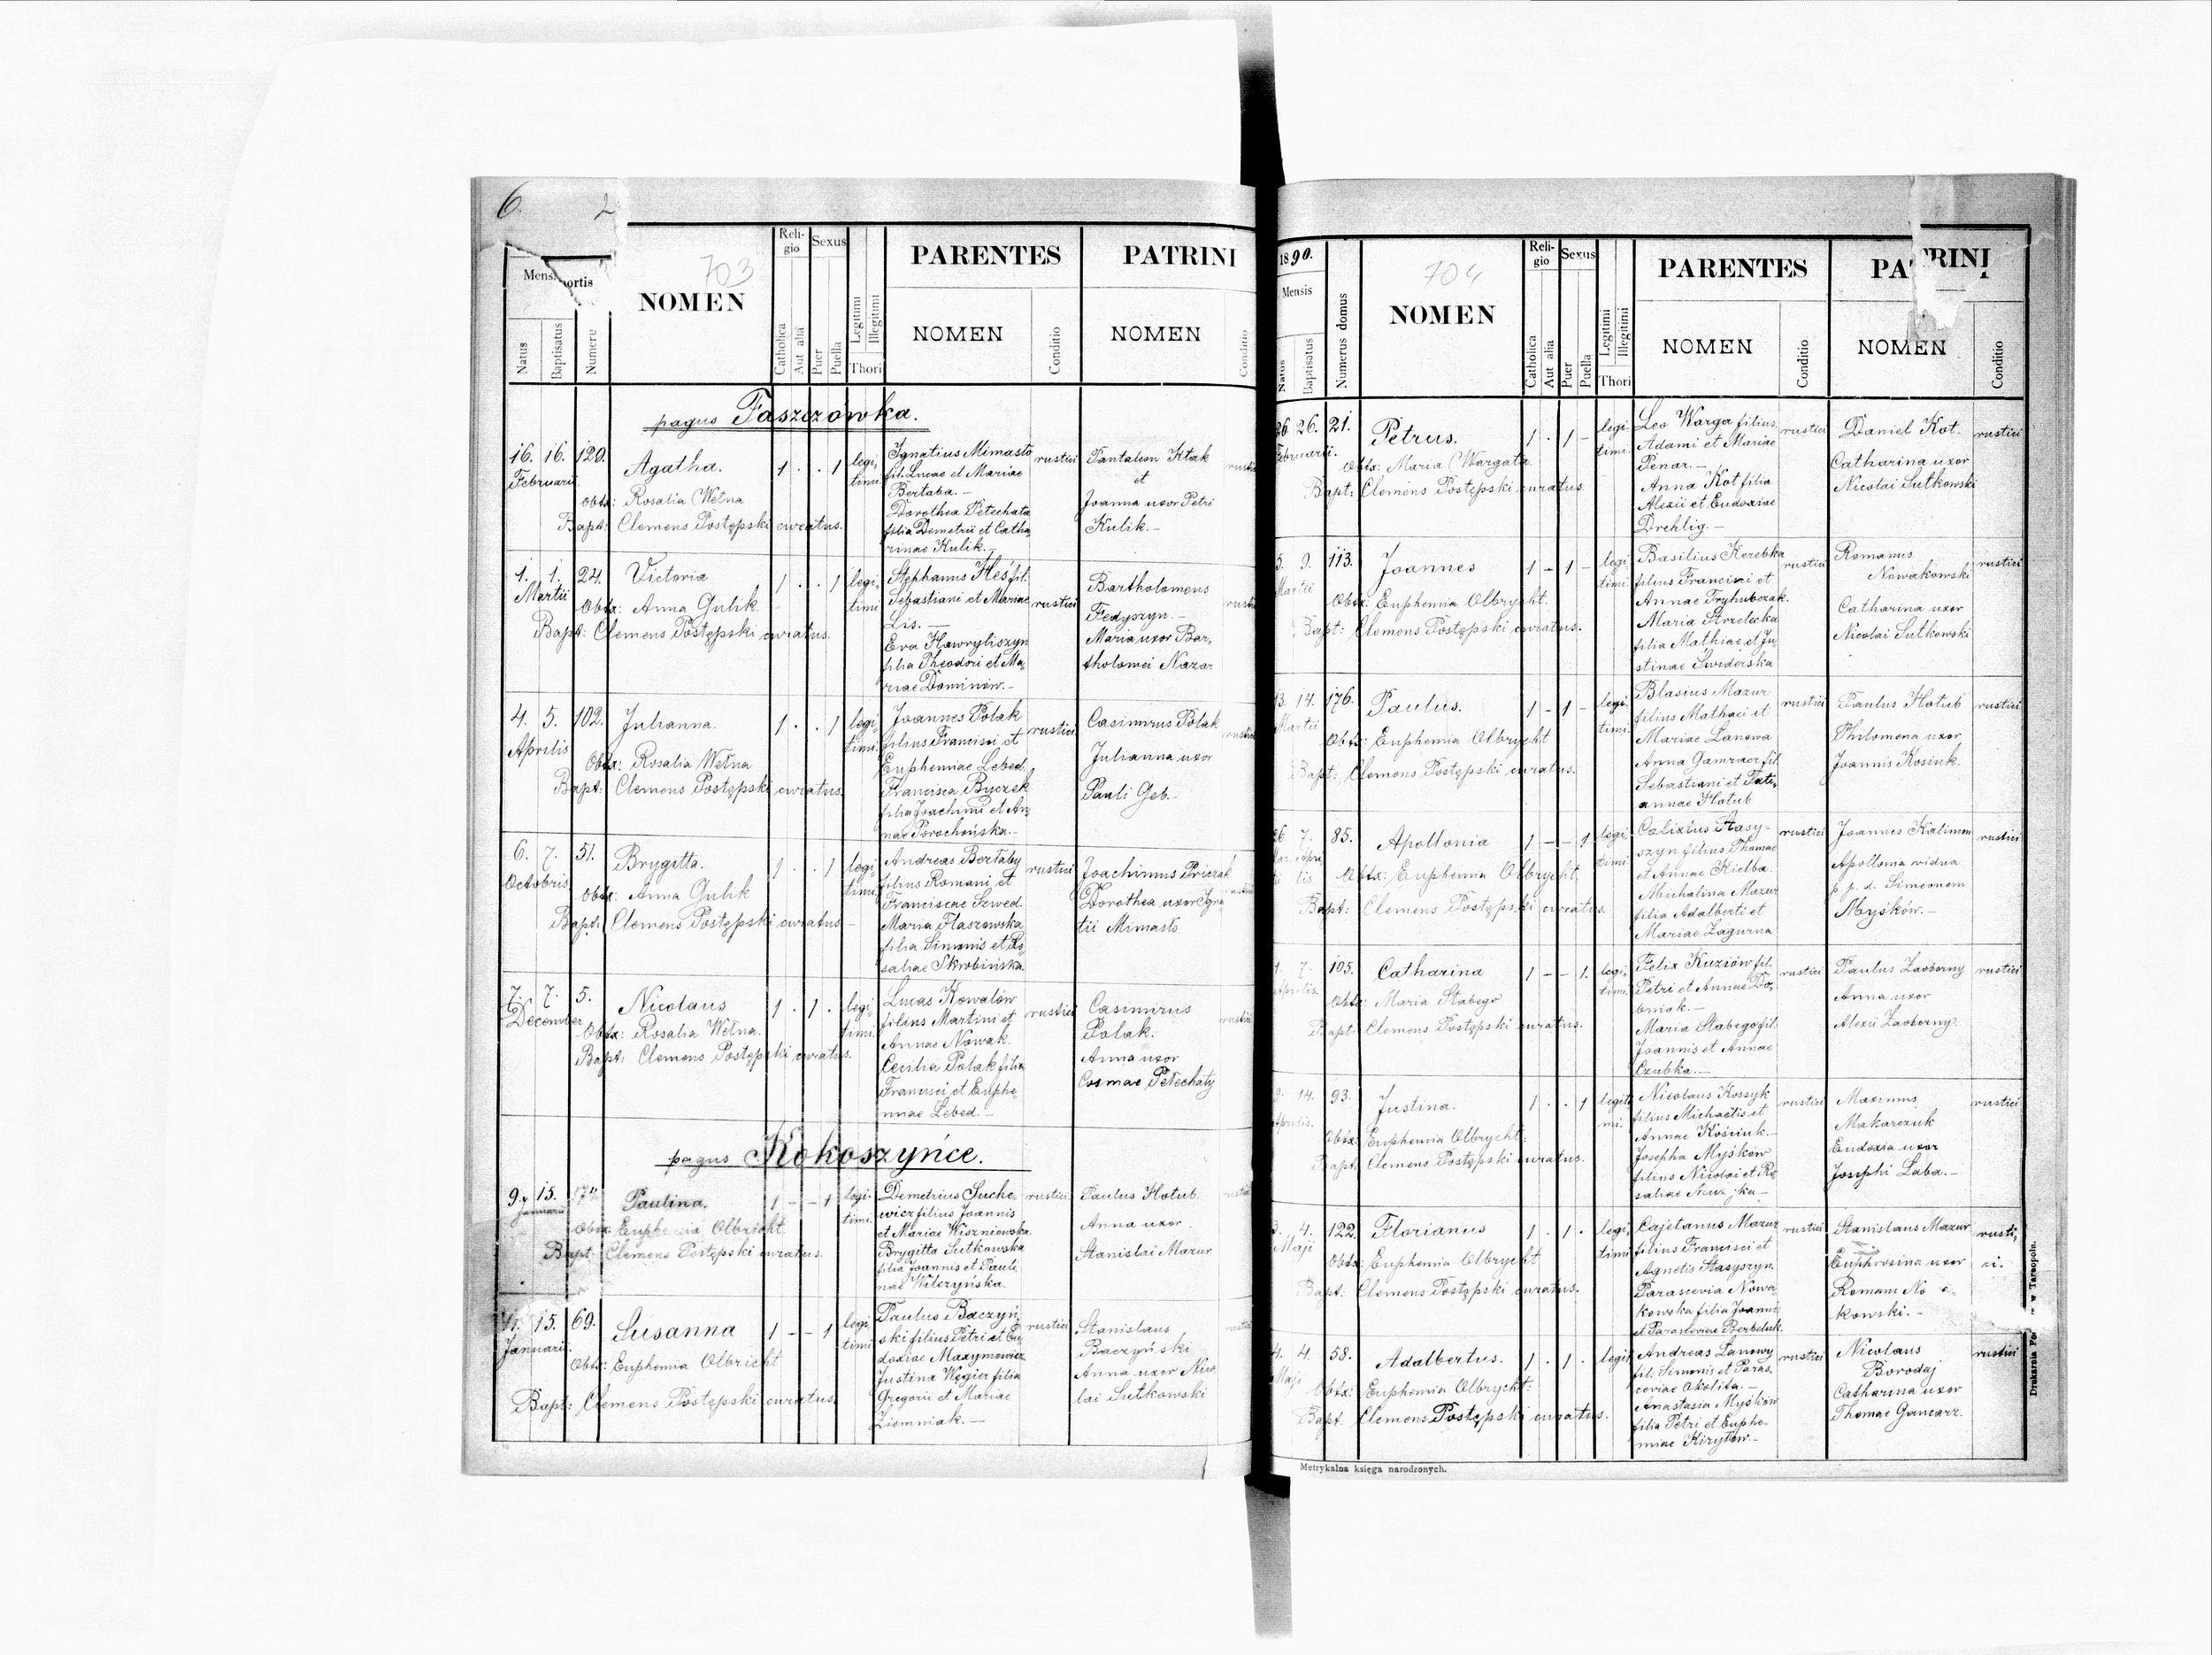 6. 2
703
Mensis
ortis
Natus
Baptisatus
Numeru
NOMEN
Reli-
gio
Catholica
Aut alia
Sexus
Puer
Puella
Legitimi
Illegitimi
Thori
PARENTES
NOMEN
Conditio
PATRINI
NOMEN
Conditio
pagus Faszczówka.
16. 16. 120. Agatha. 1 . . 1 legi-
Februarii timi
Obtx: Rosalia Wełna
Bapt: Clemens Postępski curatus.
Ignatius Mimasto
fil. Lucae et Mariae
Bertaba. —
Dorothea Petechata
filia Demetrii et Catha-
rinae Kulik. —
rustici
Pantaleon Ktak
et
Joanna uxor Petri
Kulik. —
1. 1. 24. Victoria 1 . . 1 legi-
Martii timi
Obtx: Anna Gulik.
Bapt: Clemens Postępski curatus.
Stephanus Heś fil.
Sebastiani et Mariae
Lis. —
Eva Hawryliszyn
filia Theodori et Ma-
riae Dominów. —
rustici
Bartholomeus
Fedyszyn. —
Maria uxor Bar-
tholomei Nazar
4. 5. 102. Julianna. 1 . . 1 legi-
Aprilis timi
Obtx: Rosalia Wełna
Bapt: Clemens Postępski curatus.
Joannes Polak
filius Francisci et
Euphemiae Lebed.
Francisca Byczek
filia Joachimi et An-
nae Porochońska. —
rustici
Casimirus Polak
Julianna uxor
Pauli Geb. —
6. 7. 51. Brygitta. 1 . . 1 legi-
Octobris timi
Obtx: Anna Gulik
Bapt: Clemens Postępski curatus —
Andreas Bertaby
filius Romani et
Franciscae Szwed.
Maria Flaszewska
filia Simonis et Ro-
saliae Skrobińska.
rustici
Joachimus
Dorothea uxor Igna-
tii Mimasto
7. 7. 5. Nicolaus 1 . 1 . legi-
December timi
Obtx: Rosalia Wełna.
Bapt: Clemens Postępski curatus.
Lucas Kowalów
filius Martini et
Annae Nowak.
Cecilia Polak filia
Francisci et Euphe-
miae Lebed. —
rustici
Casimirus
Polak.
Anna uxor
Cosmae Petechaty
pagus Kokoszyńce.
9. 15. 174. Paulina. 1 - - 1 legi-
Januarii timi
Obtx: Euphemia Olbricht.
Bapt: Clemens Postępski curatus.
Demetrius Suche-
wicz filius Joannis
et Mariae Wiszniewska
Brygitta Sutkowska
filia Joannis et Pauli-
nae Wilczyńska.
rustici
Paulus Hotub
Anna uxor
Stanislai Mazur
15. 69. Susanna 1 - - 1 legi
Januarii. timi
Obtx: Euphemia Olbricht
Bapt: Clemens Postępski curatus.
Paulus Baczyń-
ski filius Petri et Eu-
doxiae Maxymowicz
Justina Węgier filia
Gregorii et Mariae
Ziemniak. —
rustici
Stanislaus
Baczyński
Anna uxor Nico-
lai Sutkowski
1890.
704
Mensis
Natus
Baptisatus
Numerus domus
NOMEN
Reli-
gio
Catholica
Aut alia
Sexus
Puer
Puella
Legitimi
Illegitimi
Thori
PARENTES
NOMEN
Conditio
PATRINI
NOMEN
Conditio
26 26. 21. Petrus. 1 . 1 - legi-
Februarii. timi.
Obtx: Maria Wargata
Bapt: Clemens Postępski curatus.
Leo Warga filius
Adami et Mariae
Penar. —
Anna Kot filia
Alexii et Eudoxiae
Drehlig. —
rustici
Daniel Kot.
Catharina uxor
Nicolai Sutkowski
rustici
5. 9. 113. Joannes 1 - 1 - legi-
Martii timi.
Obtx: Euphemia Olbrycht.
Bapt: Clemens Postępski curatus.
Basilius Kerebka
filius Francisci et
Annae Tryhubczak.
Maria Strzelecka
filia Mathiae et Ju-
stinae Swiderska
rustici
Romanus
Nowakowski
Catharina uxor
Nicolai Sutkowski
rustici
13. 14. 176. Paulus. 1 - 1 - legi-
Martii timi.
Obtx: Euphemia Olbrycht
Bapt: Clemens Postępski curatus.
Blasius Mazur
filius Mathaei et
Mariae Lanowa
Anna Gamracr fil.
Sebastiani et Tati-
annae Hotub
rustici
Paulus Hotub
Philomena uxor
Joannis Kosiuk.
rustici
26 7. 85. Apollonia 1 - - 1 legi-
timi
Obtx: Euphemia Olbrycht.
Bapt: Clemens Postępski curatus.
Calixtus Stasy-
szyn filius Thomae
et Annae Kielba.
Michalina Mazur
filia Adalberti et
Mariae Zagurna
rustici
Joannes Kalimon
Apollonia vidua
p. p. d. Simeonem
Myśków. —
rustici
7. 105. Catharina 1 - - 1. legi-
Aprilis. timi.
Obtx: Maria Stabego
Bapt: Clemens Postępski curatus.
Felix Kuziów fil.
Petri et Annae Do-
bniak. —
Maria Stabego fil.
Joannis et Annae
Czubka. —
rustici
Paulus Zaoborny
Anna uxor
Alexii Zaoborny.
rustici
9. 14. 93. Justina. 1 . . 1 legiti
Aprilis. mi.
Obtx: Euphemia Olbrycht.
Bapt: Clemens Postępski curatus.
Nicolaus Kossyk
filius Michaelis et
Annae Kościuk. —
Josepha Myśków
filius Nicolai et Ro-
saliae
rustici
Maximus
Makarczuk
Eudoxia uxor
Josephi Laba. —
rustici
3. 4. 122. Florianus 1 . 1 . legi-
Maji timi
Obtx: Euphemia Olbrycht
Bapt: Clemens Postępski curatus.
Cajetanus Mazur
filius Francisci et
Agnetis Stasyszyn.
Parascevia Nowa-
kowska filia Joannis
et Parasceviae Berbeluk.
rustici
Stanislaus Mazur
Euphrosina uxor
Romani No
kowski. —
rusti-
ci.
4. 4. 58. Adalbertus. 1 . 1 . legit
Maji
Obtx: Euphemia Olbrycht:
Bapt: Clemens Postępski curatus.
Andreas Lanowy
fil. Simonis et Paras-
ceviae Okolita. —
Anastasia Myśków
filia Petri et Euphe-
miae Kirytow. —
rustici
Nicolaus
Borodaj
Catharina uxor
Thomae Gancarz.
rustici
Metrykalna księga narodzonych.
Drukarnia w Tarnopolu.